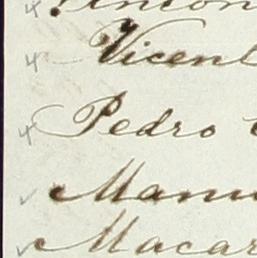 Anton
Vicent
Pedro
Manu
Macar